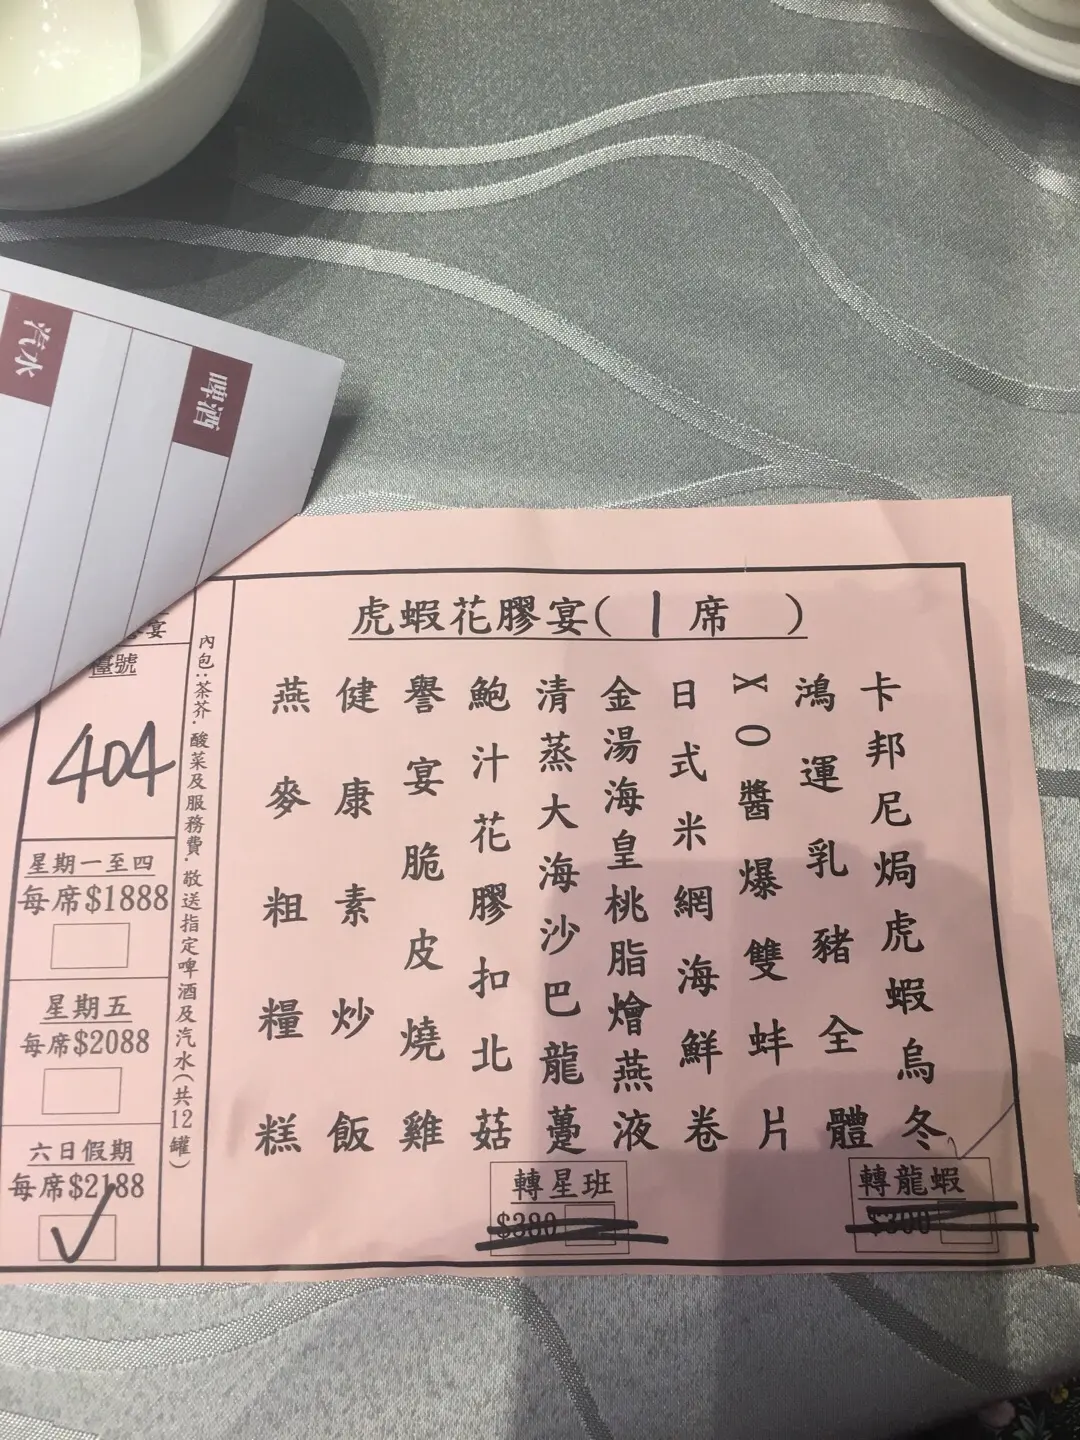 汽水
啤酒
虎蝦花膠宴( 1 席 )
卡邦尼焗虎蝦烏冬
轉龍蝦
$300
鴻運乳豬全體
XO醬爆雙蚌片
日式米網海鮮卷
金湯海皇桃脂燴燕液
清蒸大海沙巴龍躉
轉星班
$380
鮑汁花膠扣北菇
譽宴脆皮燒雞
健康素炒飯
燕麥粗糧糕
內包:茶芥.酸菜及服務費.敬送指定啤酒及汽水(共12罐)
宴
臺號
404
星期一至四
每席$1888
星期五
每席$2088
六日假期
每席$2188